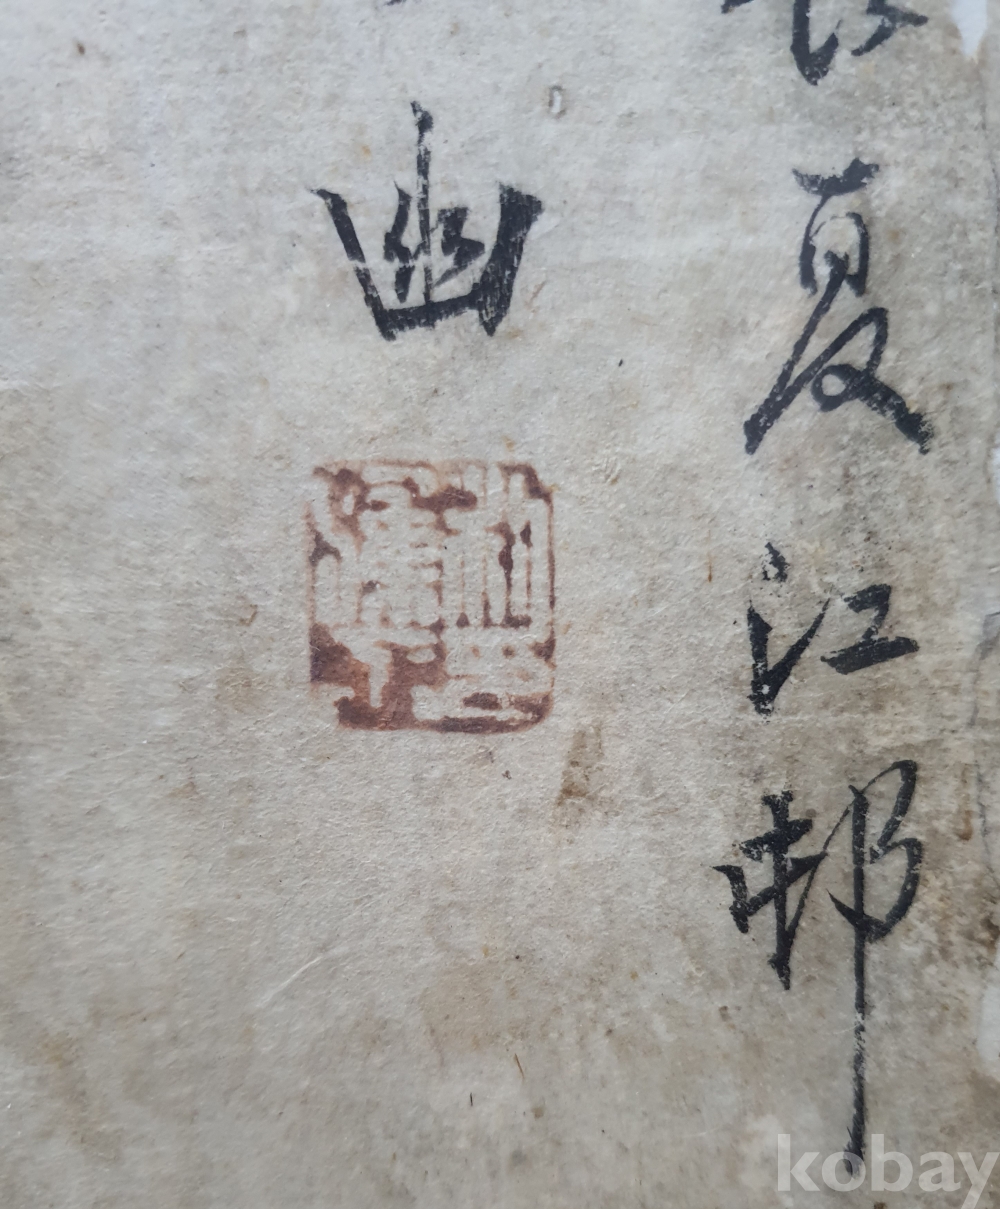 夏江邨
幽
kobay